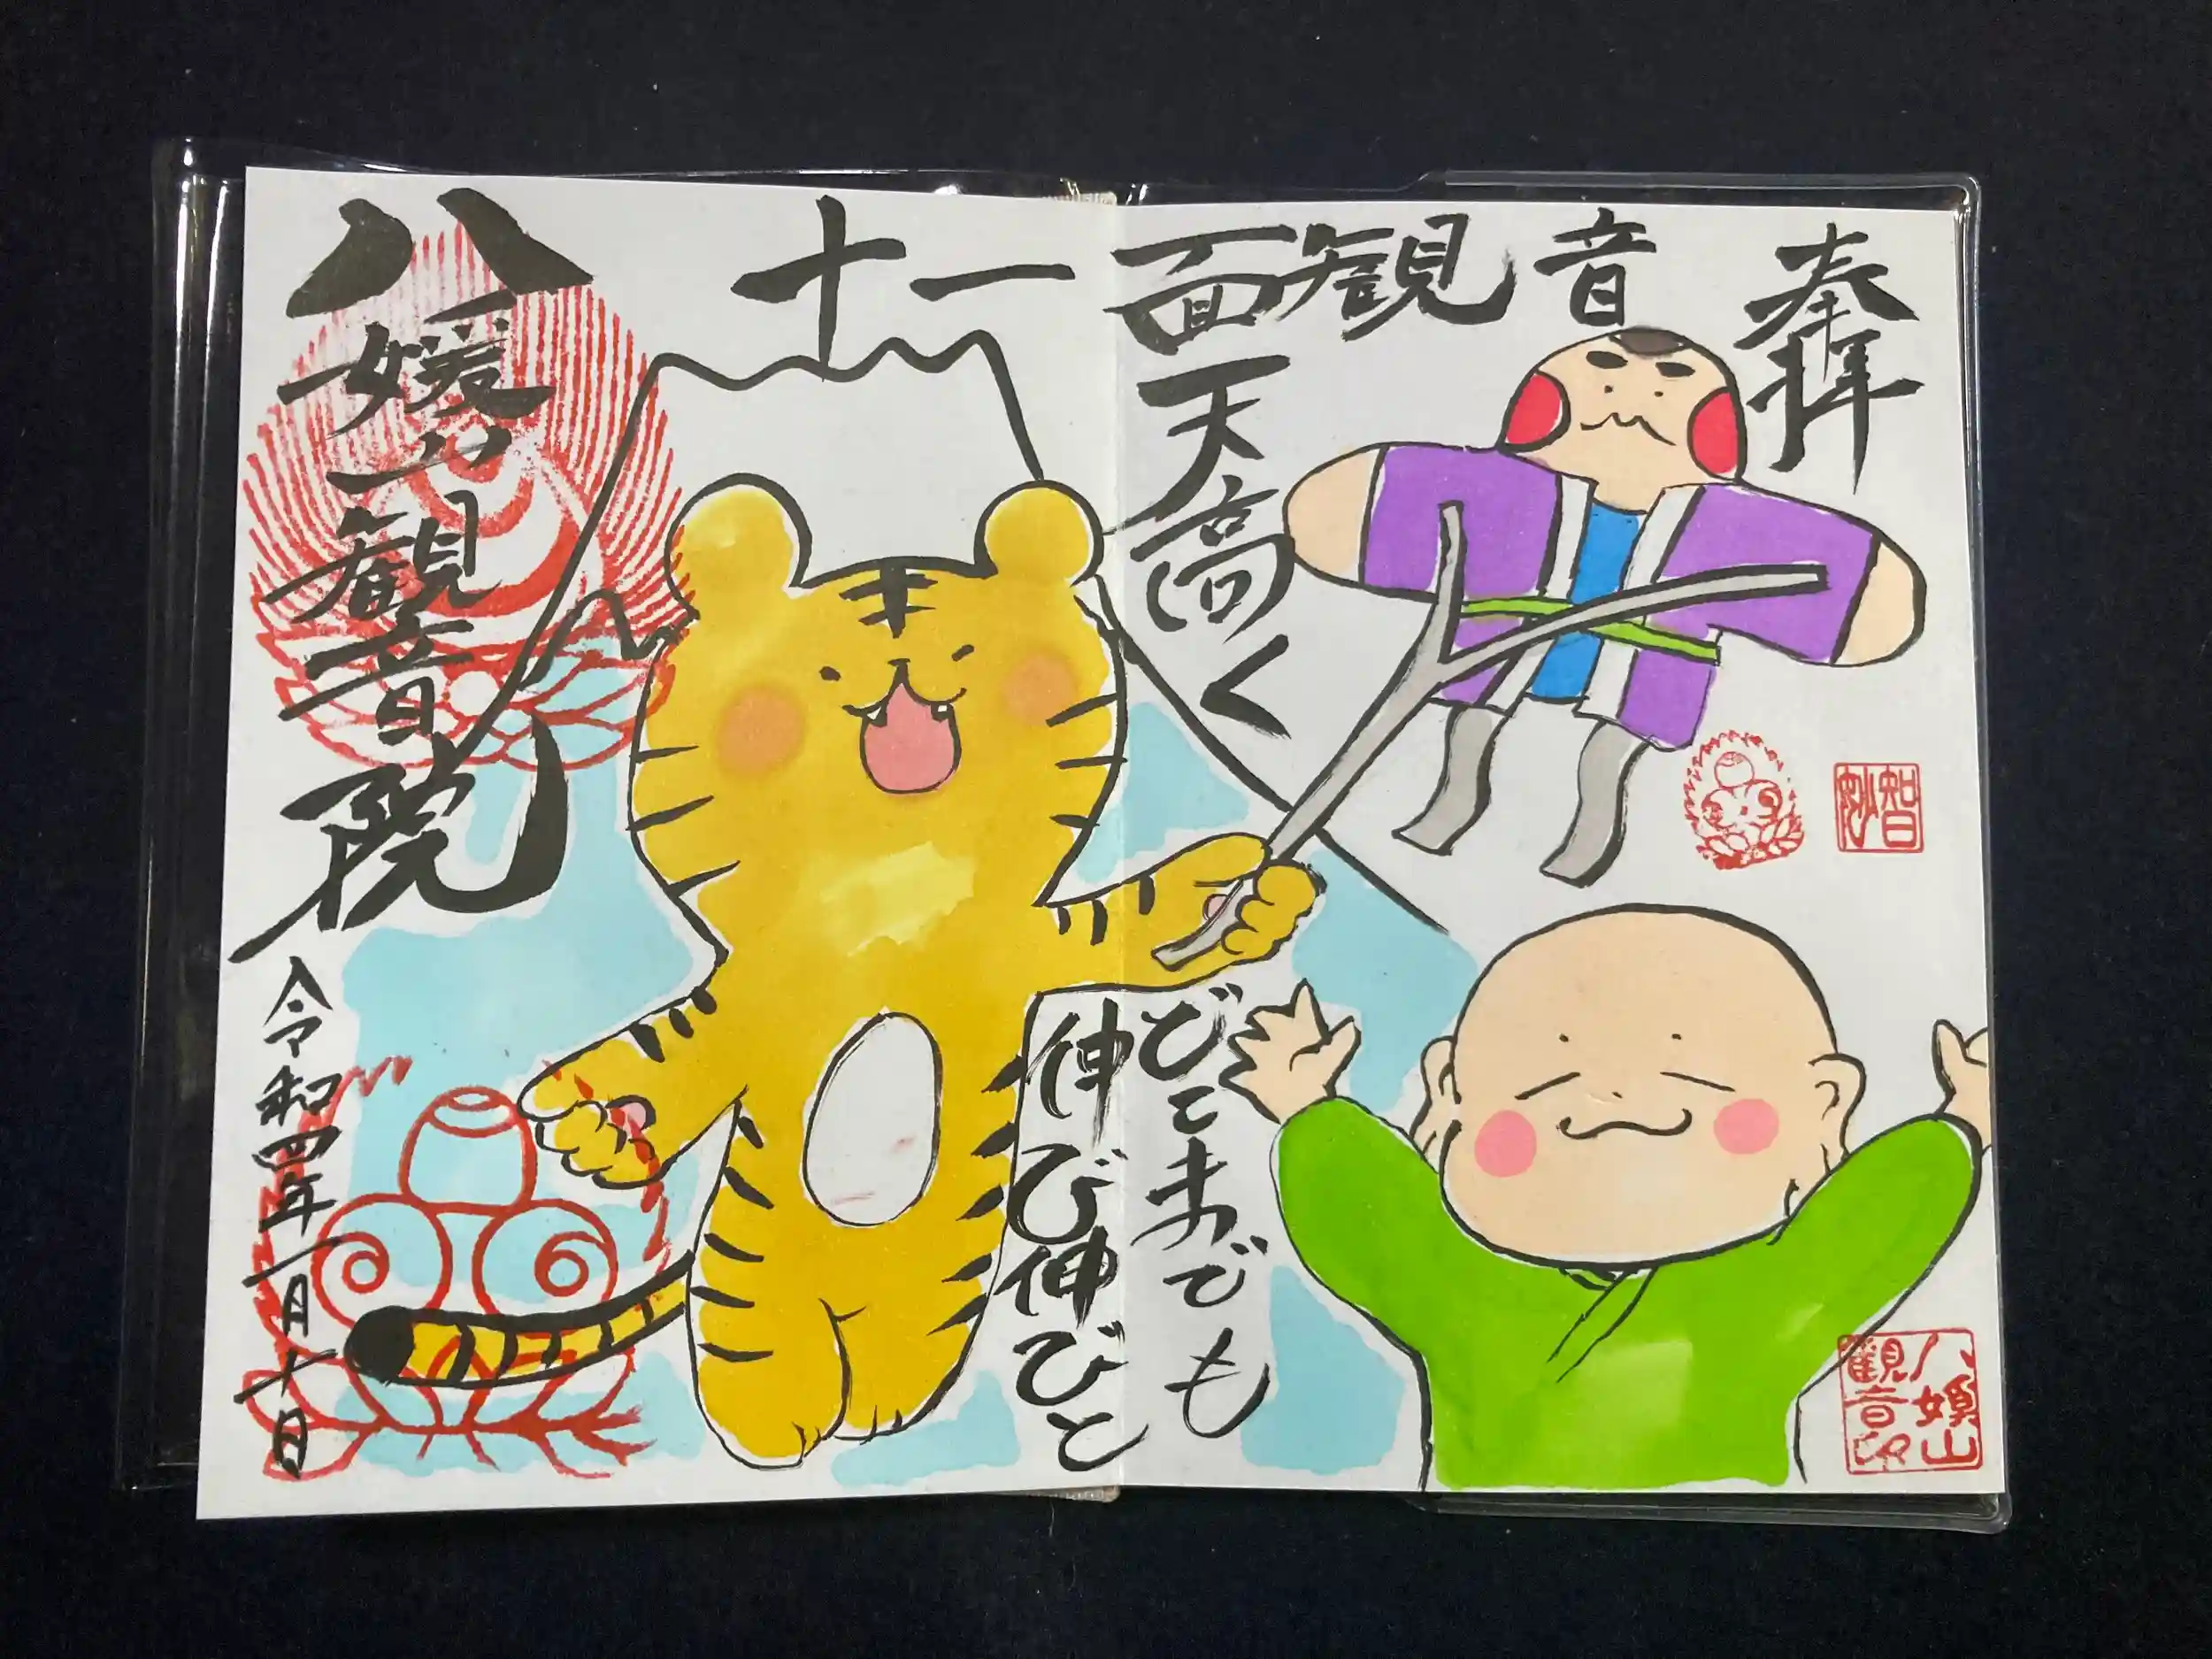 奉拝
十一面観音
天高く
どこまでも
伸び伸びと
八媛山観音院
令和四年一月十日
智妙